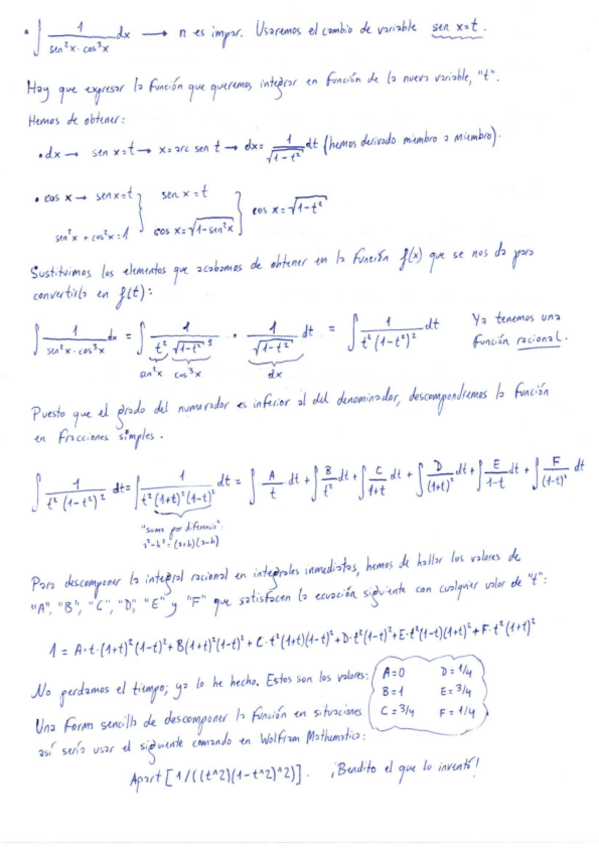 • ∫ 1/(sen²x·cos³x) dx → n es impar. Usaremos el cambio de variable sen x=t.
Hay que expresar la función que queremos integrar en función de la nueva variable, "t".
Hemos de obtener:
• dx → sen x=t → x=arc sen t → dx= 1/√(1-t²) dt (hemos derivado miembro a miembro).
• cos x → sen x=t } sen x=t } cos x=√(1-t²)
sen²x + cos²x=1 } cos x=√(1-sen²x)
Sustituimos los elementos que acabamos de obtener en la función f(x) que se nos da para
convertirla en f(t):
∫ 1/(sen²x·cos³x) dx = ∫ 1/(t² √(1-t²)³) · 1/√(1-t²) dt = ∫ 1/(t²(1-t²)²) dt Ya tenemos una
función racional.
sen²x cos³x dx
Puesto que el grado del numerador es inferior al del denominador, descompondremos la función
en fracciones simples.
∫ 1/(t²(1-t²)²) dt = ∫ 1/(t²(1+t)²(1-t)²) dt = ∫ A/t dt + ∫ B/t² dt + ∫ C/(1+t) dt + ∫ D/(1+t)² dt + ∫ E/(1-t) dt + ∫ F/(1-t)² dt
"suma por diferencia":
a²-b²=(a+b)(a-b)
Para descomponer la integral racional en integrales inmediatas, hemos de hallar los valores de
"A", "B", "C", "D", "E" y "F" que satisfacen la ecuación siguiente con cualquier valor de "t":
1 = A·t·(1+t)²(1-t)²+B(1+t)²(1-t)²+C·t²(1+t)(1-t)²+D·t²(1-t)²+E·t²(1-t)(1+t)²+F·t²(1+t)²
No perdamos el tiempo; ya lo he hecho. Estos son los valores: A=0 D=1/4
B=1 E=3/4
C=3/4 F=1/4
Una forma sencilla de descomponer la función en situaciones
así sería usar el siguiente comando en Wolfram Mathematica:
Apart [1/((t^2)(1-t^2)^2)]. ¡Bendito el que lo inventó!